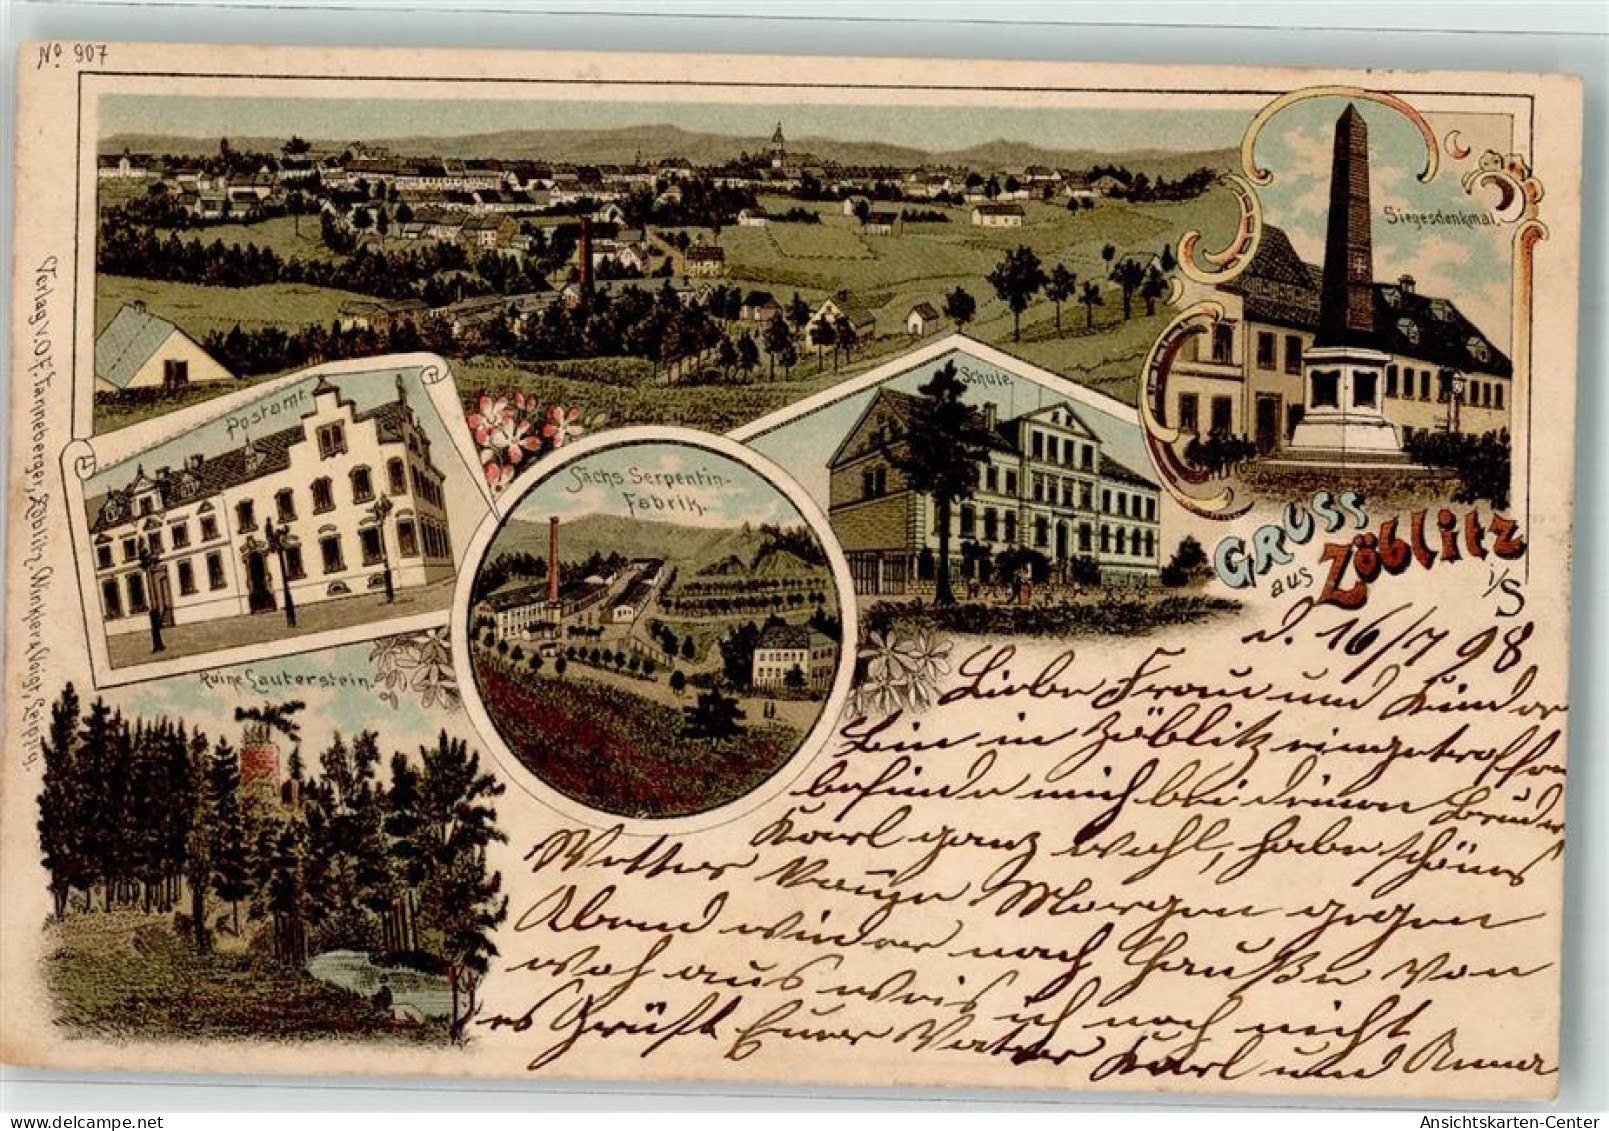 No 907
Siegesdenkmal.
Postamt.
Schule.
Sächs Serpentin-
Fabrik.
GRUSS
aus Zöblitz
i/S
Ruine Lauterstein.
Verlag v. O.F. Tanneberger, Zöblitz. Winkler & Voigt, Leipzig.
d. 16/7 98
Liebe Frau und Kinder
bin in Zöblitz eingetroffen
befinde mich bei deinen Bruder
Karl ganz wohl, habe schönes
Wetter Morgen gegen
Abend wieder nach Hause von
wo aus weis ich noch nicht
es Grüßt Eurer Vater Karl und Anna
Ansichtskarten-Center